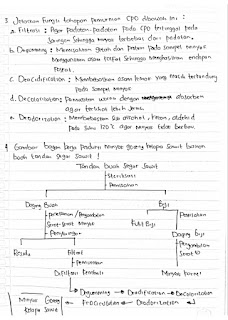 3. Jelaskan fungsi tahapan pemurnian CPO dibawah ini :
a. Filtrasi : Agar padatan-padatan pada CPO tertinggal pada
saringan sehingga minyak terbebas dari padatan.
b. Degumming : Memisahkan getah dan protein pada sampel minyak
menggunakan asam fosfat sehingga menghasilkan endapan
c. Deacidification : Membebaskan asam lemak yang masih terkandung
pada sampel minyak
d. Decoloritation : Pemucatan warna dengan adsorben
agar terlihat lebih jernih.
e. Deodoritation : Membebaskan bau alkohol, keton, aldehid
pada suhu 120°C agar minyak tidak berbau.
4. Gambar bagan kerja produksi minyak goreng kelapa sawit bahan
buah tandan segar sawit !
Tandan buah Segar Sawit
Sterilisasi
Pemisahan
Daging Buah
Biji
Serat-serat minyak
Penyaringan
Pemecahan
Kulit Biji
Daging Biji
Residu
Filtrat
Pemisahan
Difiltrasi kembali
Minyak kernel
Degumming → Deacidification → Decoloritation
Minyak Goreng
Kelapa Sawit
← Deodoritation